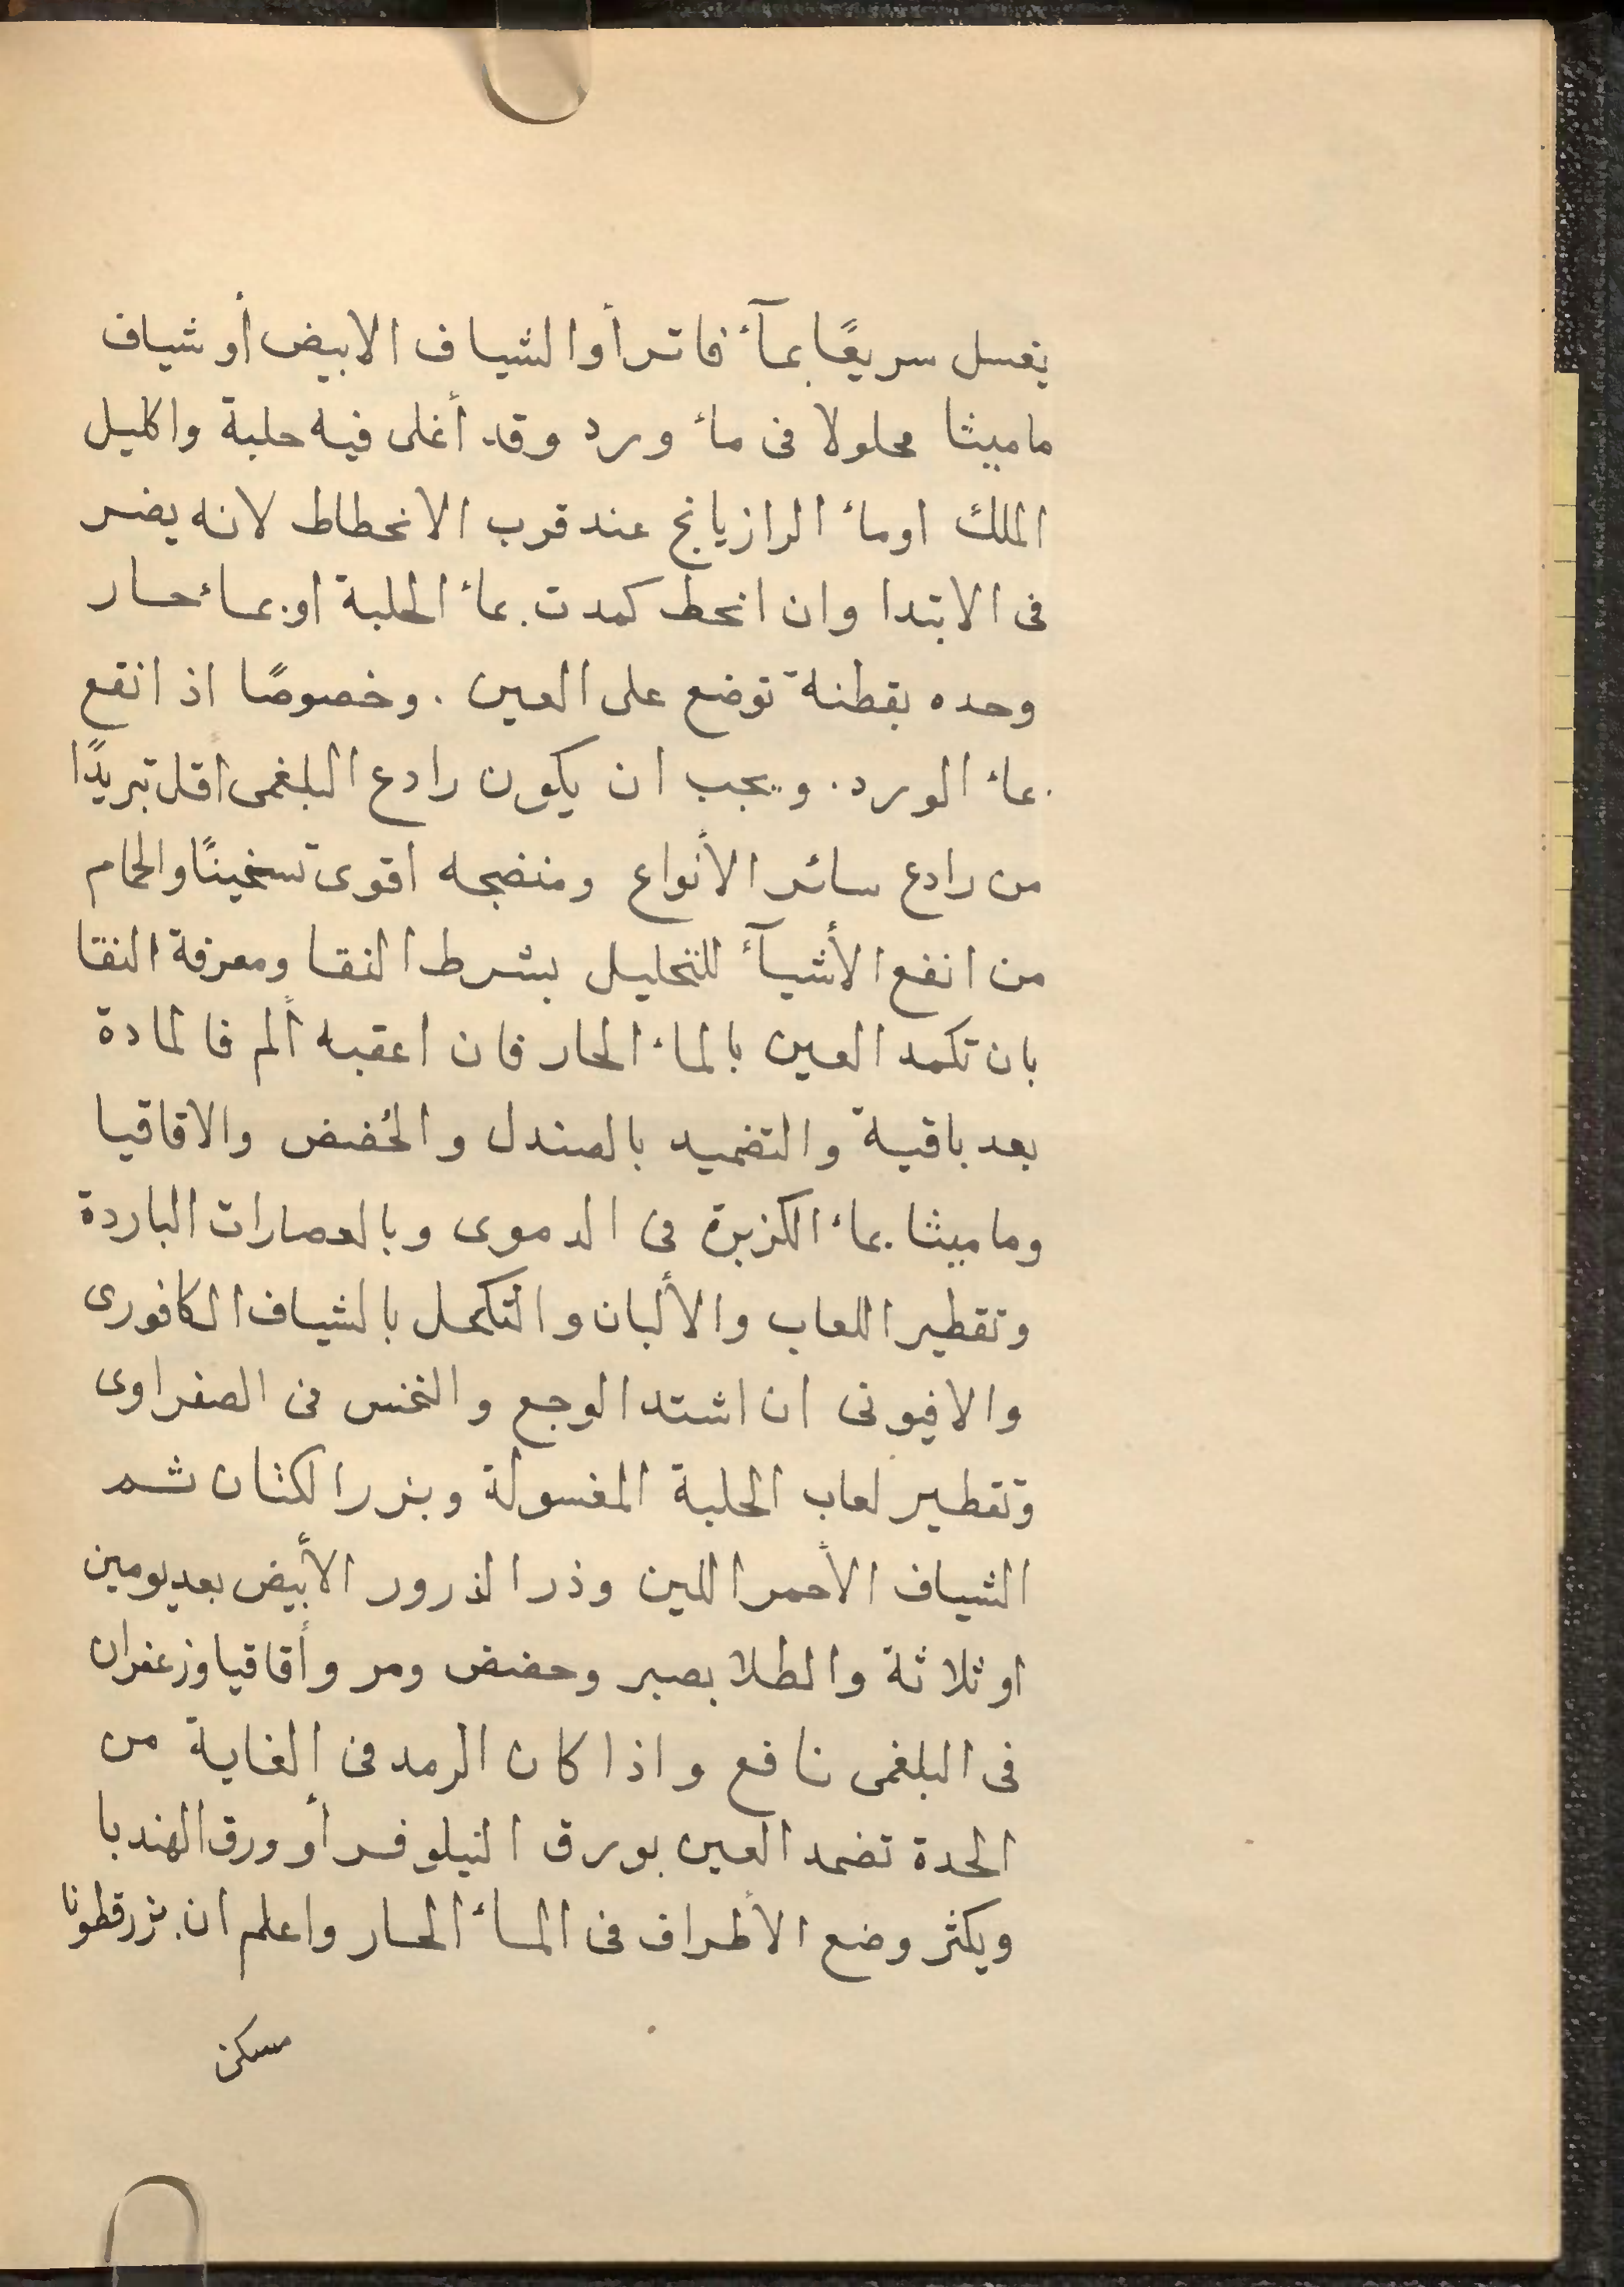 يغسل سريعًا بمآء فاتر أو الشياف الابيض أو شياف
ماميثا محلولا فى ماء ورد وقد أغلى فيه حلبة واكليل
الملك اوماء الرازيانج عند قرب الانحطاط لانه يضر
فى الابتدا وان انحط كمدت بماء الحلبة او بماء حار
وحده بقطنة توضع على العين . وخصوصًا اذ انقع
بماء الورد . ويجب ان يكون رادع البلغمى اقل تبريدًا
من رادع سائر الأنواع ومنضجه اقوى تسخينًا والحمام
من انفع الأشيآء للتحليل بشرط النقا ومعرفة النقا
بان تكمد العين بالماء الحار فان اعقبه ألم فالمادة
بعد باقية والتضميد بالصندل والحُضض والاقاقيا
وماميثا بماء الكزبرة فى الدموى وبالعصارات الباردة
وتقطير اللعاب والألبان والتكحل بالشياف الكافورى
والافيونى ان اشتد الوجع والنخس فى الصفراوى
وتقطير لعاب الحلبة المغسولة وبزر الكتان ثم
الشياف الأحمر اللين وذر الذرور الأبيض بعد يومين
او ثلاثة والطلا بصبر وحضض ومر وأقاقيا وزعفران
فى البلغمى نافع واذا كان الرمد فى الغاية من
الحدة تضمد العين بورق النيلوفر أو ورق الهندبا
ويكثر وضع الأطراف فى الماء الحار واعلم ان بزرقطونا
مسكن